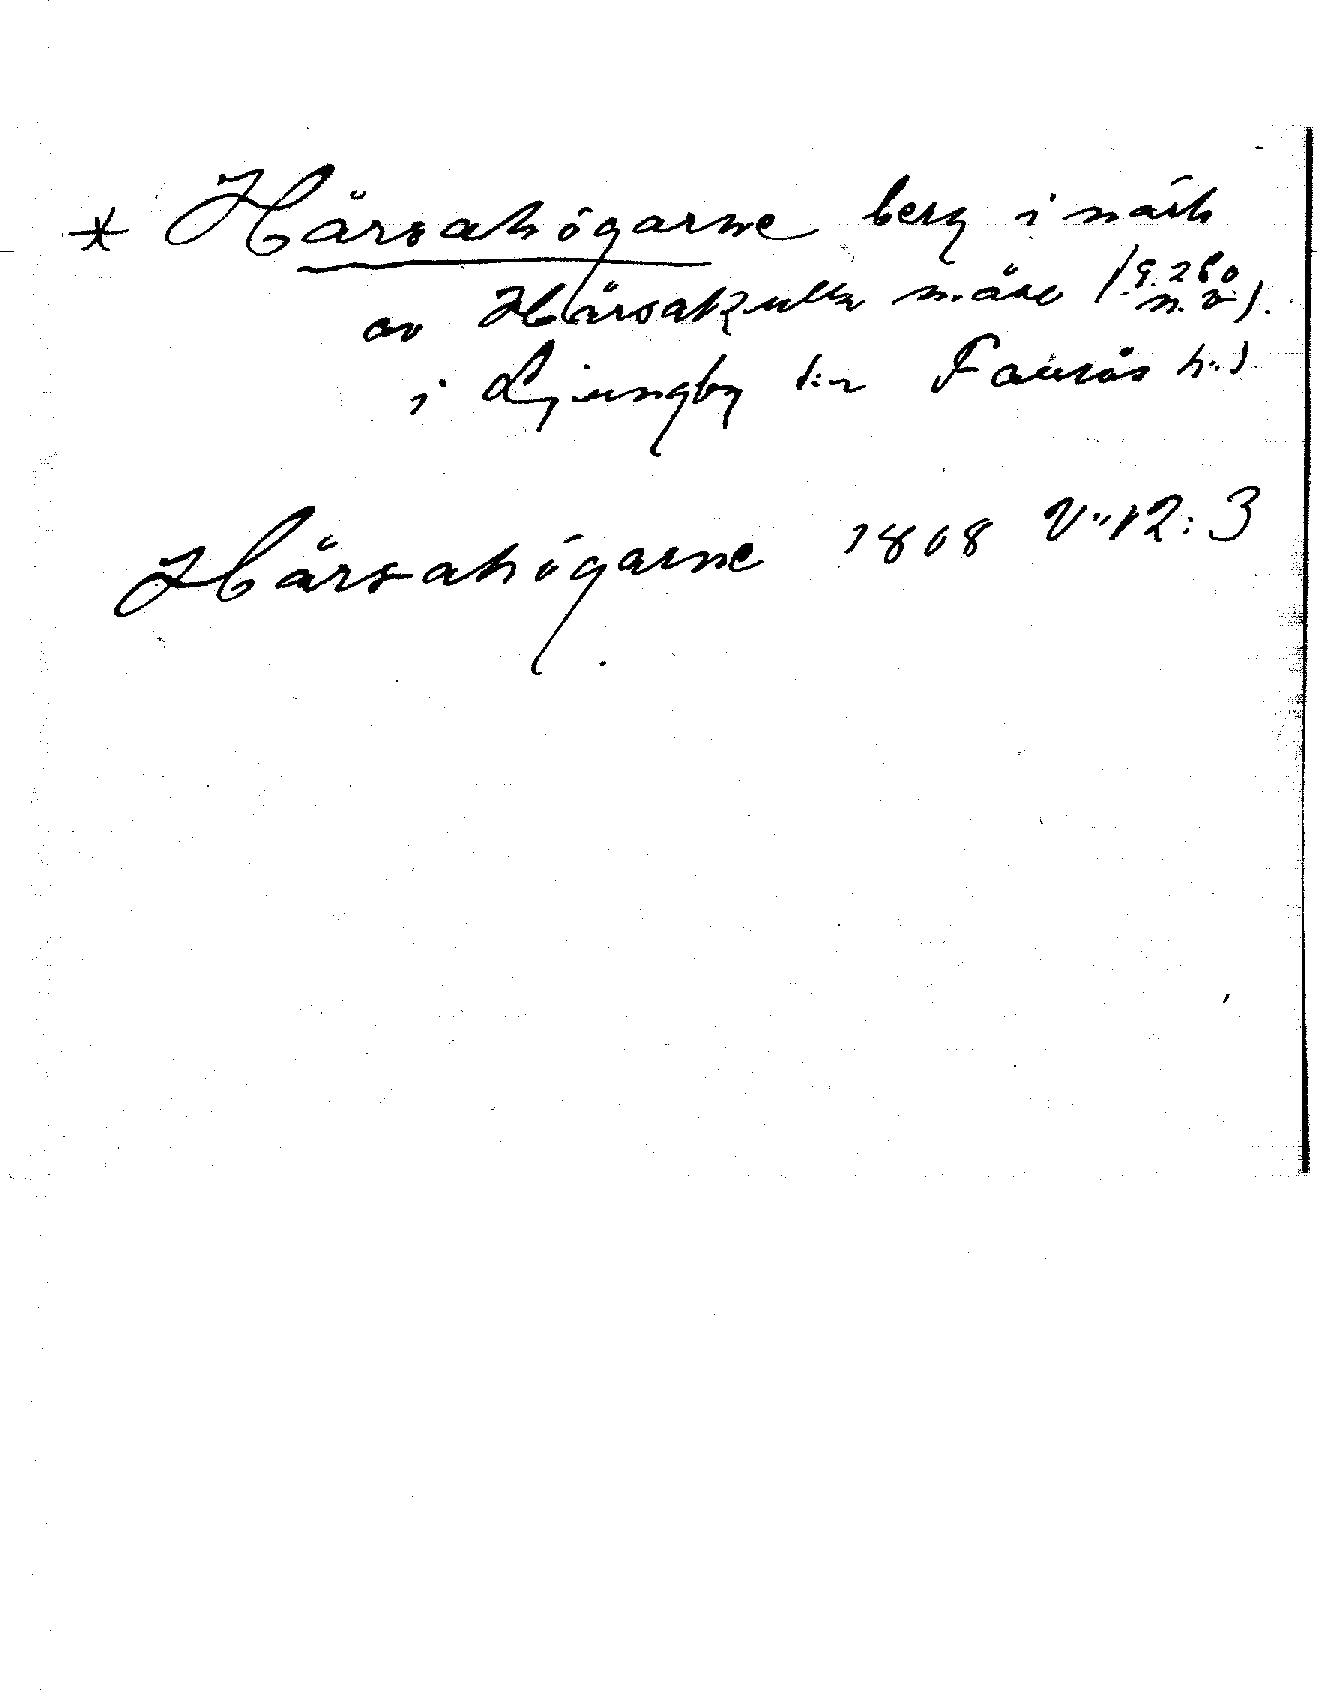 * Hårsahögarne berg i närh
av Hårsakulla märe (s. 260 n. v).
i Ljungby s:n Faurås h:d
Hårsahögarne 1808 V:12:3